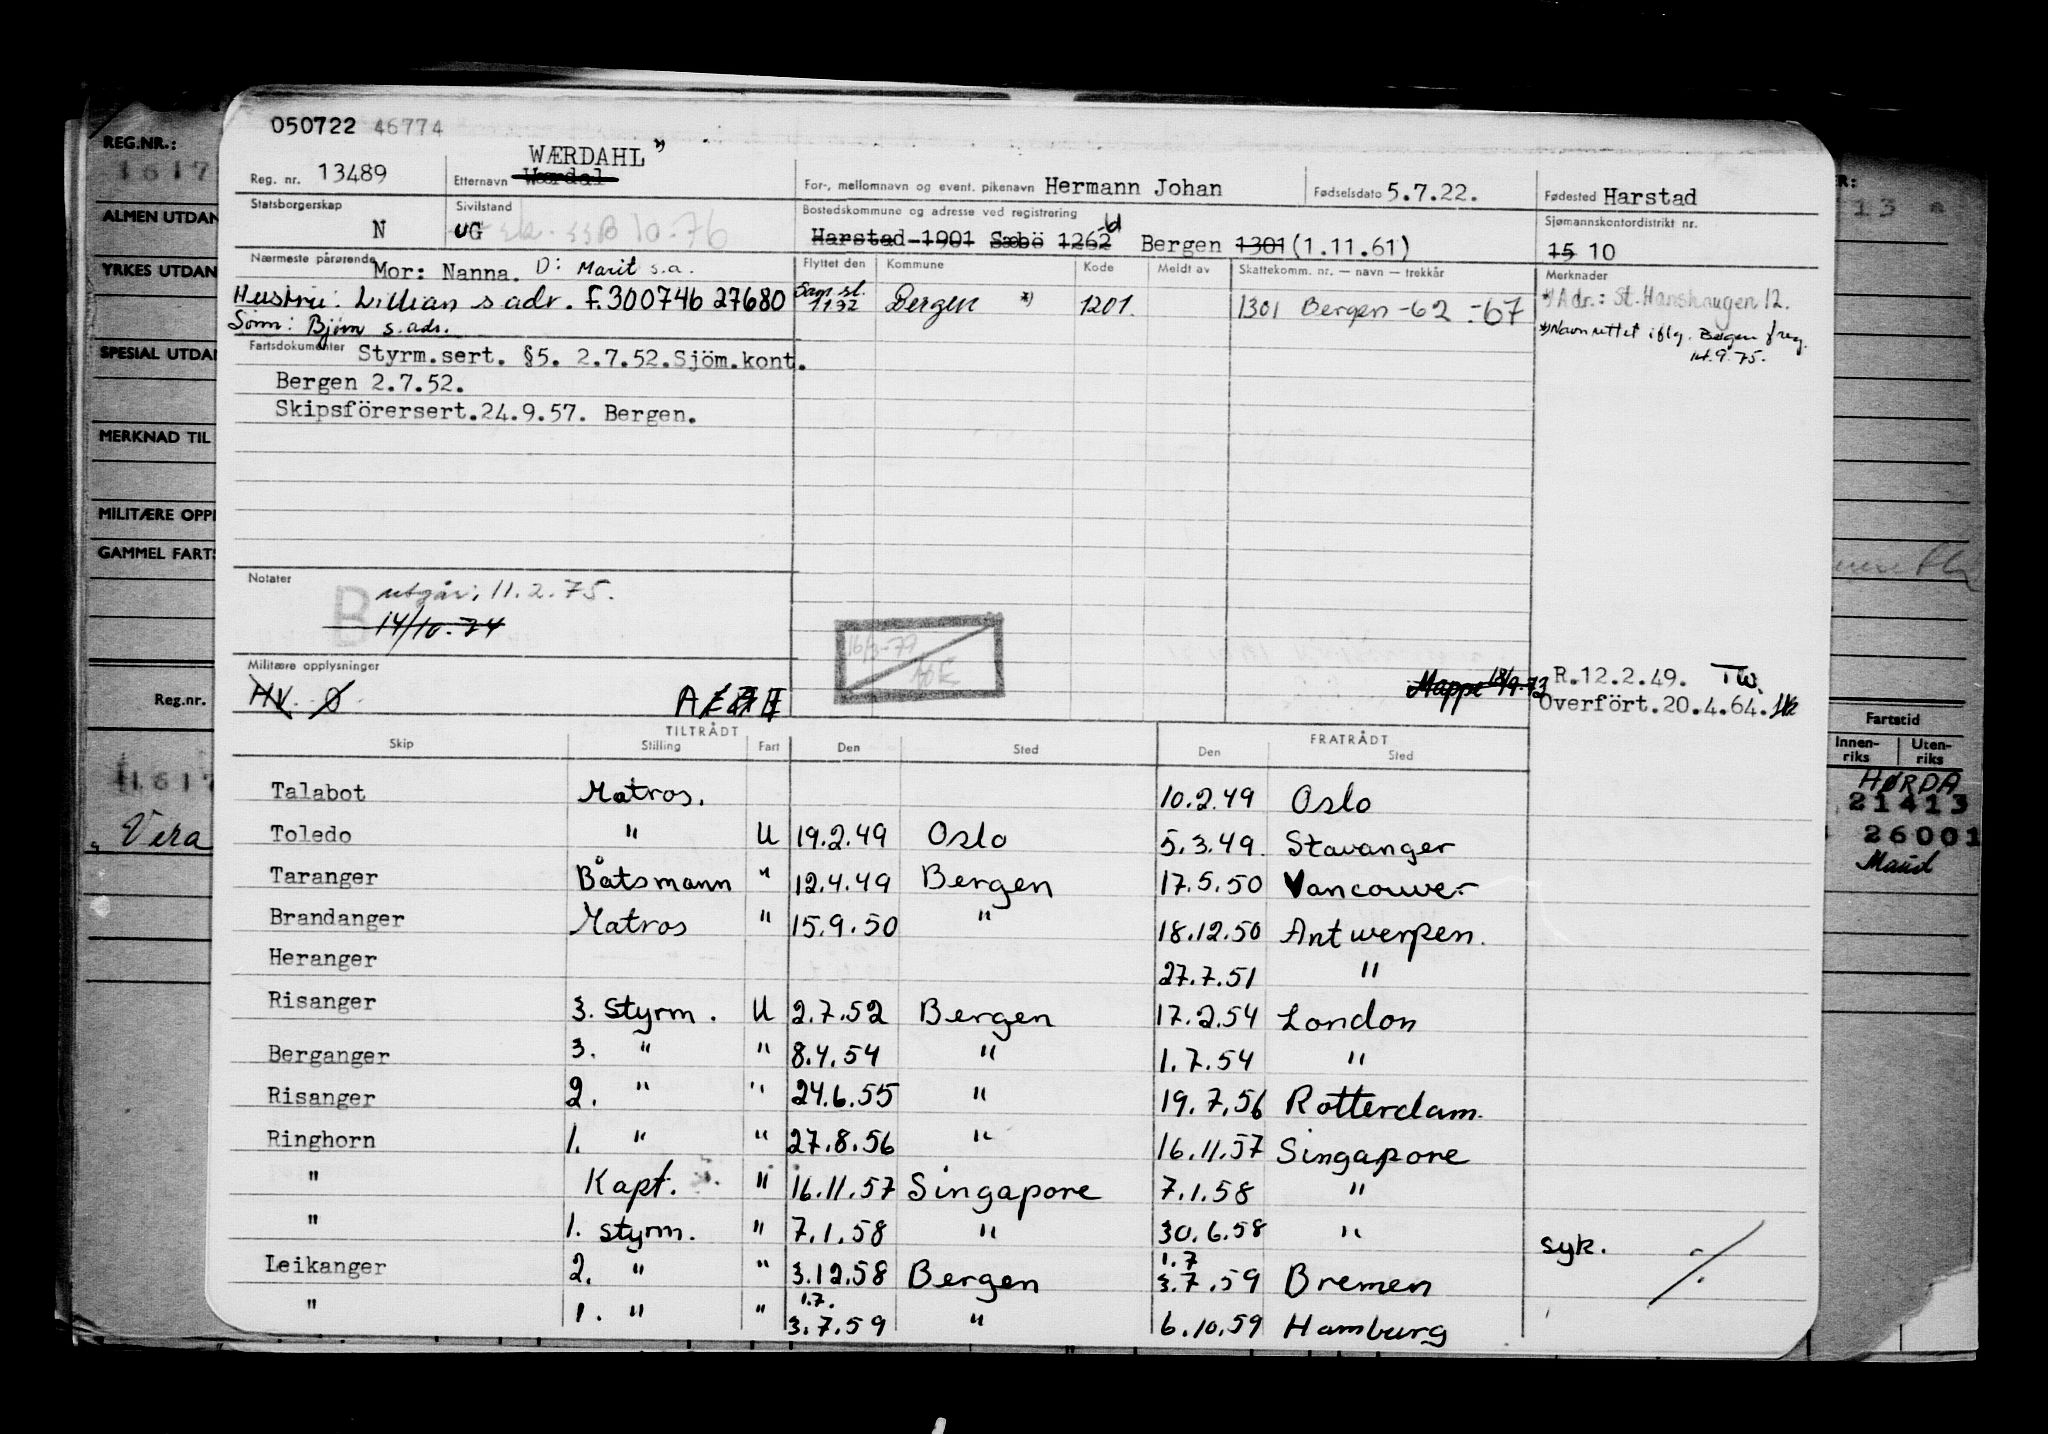 050722 46774
WÆRDAHL
Reg. nr. 13489 Etternavn Wærdal For-, mellomnavn og event. pikenavn Hermann Johan Fødselsdato 5.7.22. Fødested Harstad
Statsborgerskap N Sivilstand UG 10-76 Bostedskommune og adresse ved registrering Harstad-1901 Sæbö 1262 Bergen 1301 (1.11.61) Sjømannskontordistrikt nr. 15 10
Nærmeste pårørende Mor: Nanna. D: Marit s.a. Flyttet den Kommune Kode Meldt av Skattekomm. nr. — navn — trekkår Merknader
Hustru: Lillian s adr. F.300746 27680 Bergen 1201. 1301 Bergen -62 -67 Adr.: St. Hanshaugen 12.
Sønn: Bjørn s. adr. Navn rettet iflg. Bergen f.reg.
9.75.
Fartsdokumenter Styrm.sert. §5. 2.7.52.Sjöm.kont.
Bergen 2.7.52.
Skipsförersert.24.9.57. Bergen.
Notater B utgår, 11.2.75.
14/10-74
16/3-79
Militære opplysninger
HV. Ø A Mappe 18/9.73 R.12.2.49. TW.
Overfört.20.4.64.
TILTRÅDT FRATRÅDT
Skip Stilling Fart Den Sted Den Sted
Talabot Matros. 10.2.49 Oslo
Toledo " U 19.2.49 Oslo 5.3.49. Stavanger
Taranger Båtsmann " 12.4.49 Bergen 17.5.50 Vancouver
Brandanger Matros " 15.9.50 " 18.12.50 Antwerpen.
Heranger 27.7.51 "
Risanger 3. styrm. U 2.7.52 Bergen 17.2.54 London
Berganger 3. " " 8.4.54 " 1.7.54 "
Risanger 2. " " 24.6.55 " 19.7.56 Rotterdam.
Ringhorn 1. " " 27.8.56 " 16.11.57 Singapore
" Kapt. " 16.11.57 Singapore 7.1.58 "
" 1. styrm. " 7.1.58 " 30.6.58 " syk.
Leikanger 2. " " 3.12.58 Bergen 1.7 3.7.59 Bremen
" 1. " " 1.7. 3.7.59 " 6.10.59 Hamburg
REG.NR.:
1617
ALMEN UTDAN
YRKES UTDAN
SPESIAL UTDAN
MERKNAD TIL
MILITÆRE OPPL
GAMMEL FARTS
Reg.nr.
1617
Vera
R:
13
Fartstid
Innen-riks Uten-riks
HØRDA
21413
26001
Maud